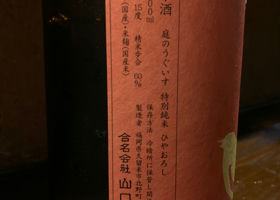 酒　庭のうぐいす　特別純米　ひやおろし
００ml
15度　精米歩合　60％
(国産)・米麹(国産米)
保存方法　冷暗所に保管し
製造者　福岡県久留米市北野町
合名会社山口